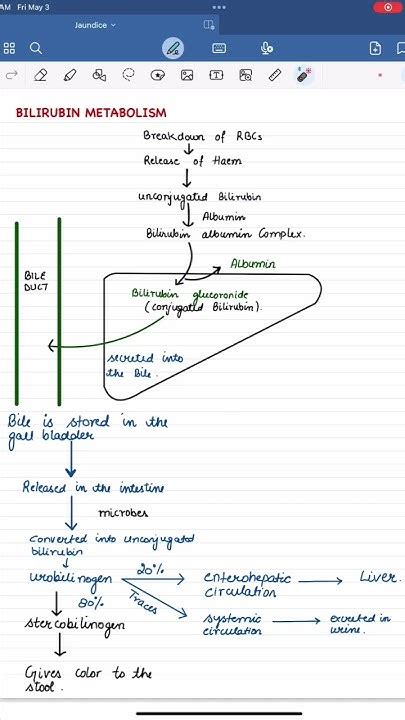 AM Fri May 3
Jaundice
BILIRUBIN METABOLISM
Breakdown of RBCs
Release of Haem
unconjugated Bilirubin
Albumin
Bilirubin albumin Complex.
Albumin
BILE
DUCT
Bilirubin glucoronide
(conjugated Bilirubin).
secreted into
the Bile.
Bile is stored in the
gall bladder
Released in the intestine
microbes
converted into unconjugated
bilirubin
urobilinogen
20%
enterohepatic
circulation
Liver.
80%
Traces
stercobilinogen
systemic
circulation
excreted in
urine.
Gives color to the
stool.